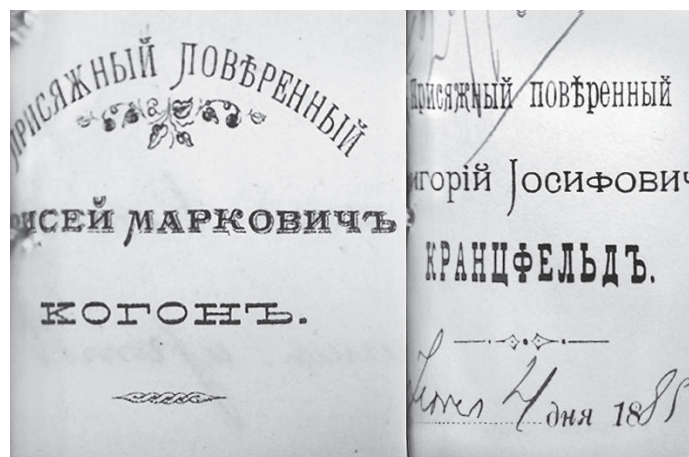 ПРИСЯЖНЫЙ ПОВѢРЕННЫЙ
МАРКОВИЧЪ
КОГОНЪ.
Присяжный повѣренный
ІОСИФОВИЧ
КРАНЦФЕЛЬДЪ.
4 дня 1885